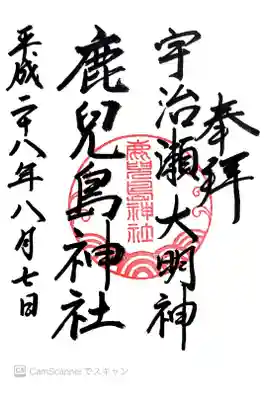 奉拝
宇治瀬大明神
鹿兒島神社
平成二十八年八月七日
鹿児島神社
CS CamScanner でスキャン